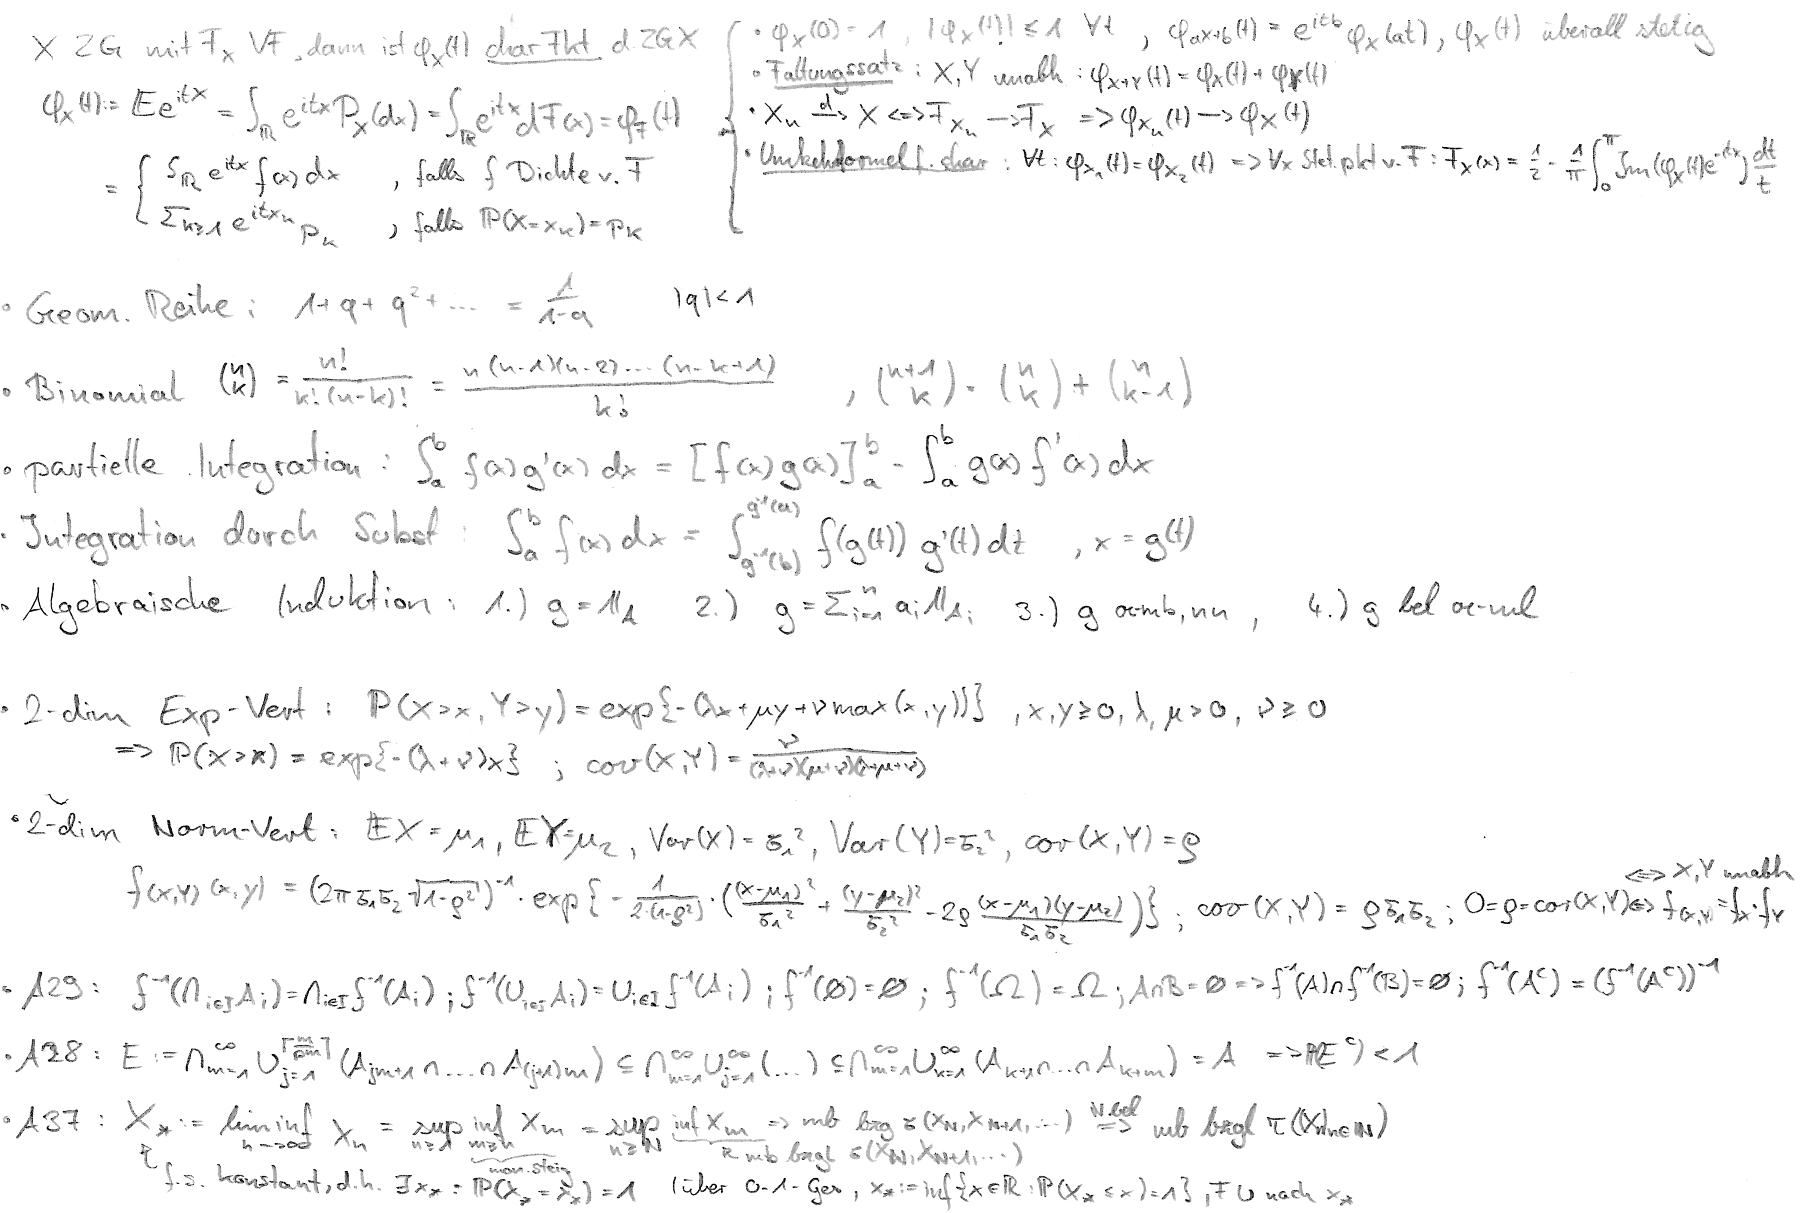 X ZG mit F_X VF, dann ist φ_X(t) char Fkt d. ZG X
φ_X(t) := 𝔼e^{itX} = ∫_ℝ e^{itx} P_X(dx) = ∫_ℝ e^{itx} dF(x) = φ_F(t)
= { ∫_ℝ e^{itx} f(x) dx , falls f Dichte v. F
Σ_{k≥1} e^{itx_k} p_k , falls ℙ(X=x_k) = p_k
• φ_X(0) = 1, |φ_X(t)| ≤ 1 ∀t, φ_{aX+b}(t) = e^{itb} φ_X(at), φ_X(t) überall stetig
• Faltungssatz: X,Y unabh: φ_{X+Y}(t) = φ_X(t) + φ_Y(t)
• X_n →^d X <=> F_{X_n} → F_X => φ_{X_n}(t) → φ_X(t)
• Umkehrformel f. char: ∀t: φ_{X_1}(t) = φ_{X_2}(t) => ∀x Stet.pkt v. F: F_X(x) = 1/2 - 1/π ∫_0^π Im(φ_X(t) e^{-itx}) dt/t
• Geom. Reihe: 1 + q + q² + ... = 1/(1-q) |q| < 1
• Binomial (n k) = n!/(k!(n-k)!) = n(n-1)(n-2)...(n-k+1)/k! , (n+1 k) = (n k) + (n k-1)
• partielle Integration: ∫_a^b f(x) g'(x) dx = [f(x) g(x)]_a^b - ∫_a^b g(x) f'(x) dx
• Integration durch Subst: ∫_a^b f(x) dx = ∫_{g^{-1}(b)}^{g^{-1}(a)} f(g(t)) g'(t) dt , x = g(t)
• Algebraische Induktion: 1.) g = 𝟙_A 2.) g = Σ_{i=1}^n a_i 𝟙_{A_i} 3.) g α-mb, nn, 4.) g bel
• 2-dim Exp-Vert: ℙ(X>x, Y>y) = exp{-(λx + μy + ν max(x,y))} , x,y ≥ 0, λ, μ > 0, ν ≥ 0
=> ℙ(X>x) = exp{-(λ+ν)x} ; cov(X,Y) = ν/((λ+ν)(μ+ν)(λ+μ+ν))
• 2-dim Norm-Vert: 𝔼X = μ_1, 𝔼Y = μ_2, Var(X) = σ_1², Var(Y) = σ_2², cor(X,Y) = ρ
f_{(X,Y)}(x,y) = (2πσ_1σ_2 √(1-ρ²))^{-1} · exp{- 1/(2·(1-ρ²)) · ((x-μ_1)²/σ_1² + (y-μ_2)²/σ_2² - 2ρ (x-μ_1)(y-μ_2)/(σ_1σ_2))} ; cov(X,Y) = ρσ_1σ_2 ; 0 = ρ = cor(X,Y) <=> f_{(X,Y)} = f_X·f_Y
<=> X,Y unabh
• A29: f^{-1}(∩_{i∈I} A_i) = ∩_{i∈I} f^{-1}(A_i) ; f^{-1}(∪_{i∈I} A_i) = ∪_{i∈I} f^{-1}(A_i) ; f^{-1}(∅) = ∅ ; f^{-1}(Ω) = Ω ; A∩B = ∅ => f^{-1}(A)∩f^{-1}(B) = ∅ ; f^{-1}(A^c) = (f^{-1}(A^c))^{-1}
• A28: E := ∩_{m=1}^∞ ∪_{j=1}^{⌈m/p^m⌉} (A_{jm+1} ∩ ... ∩ A_{(j+1)m}) ⊆ ∩_{m=1}^∞ ∪_{j=1}^∞ (...) ⊆ ∩_{m=1}^∞ ∪_{k=1}^∞ (A_{k+1} ∩ ... A_{k+m}) = A => ℙ(E^c) < 1
• A37: X_* := lim inf_{n→∞} X_n = sup_{n≥1} inf_{m≥n} X_m = sup_{n≥N} inf X_m => mb bzg σ(X_N, X_{N+1}, ...) =>^{N bel} mb bzgl τ(X_n|n∈ℕ)
mon. steig
mb bzgl σ(X_N, X_{N+1}, ...)
f.s. konstant, d.h. ∃x_* : ℙ(X_* = x_*) = 1 (über 0-1-Ges, x_* := inf{x∈ℝ : ℙ(X_* ≤ x) = 1}, nach x_*